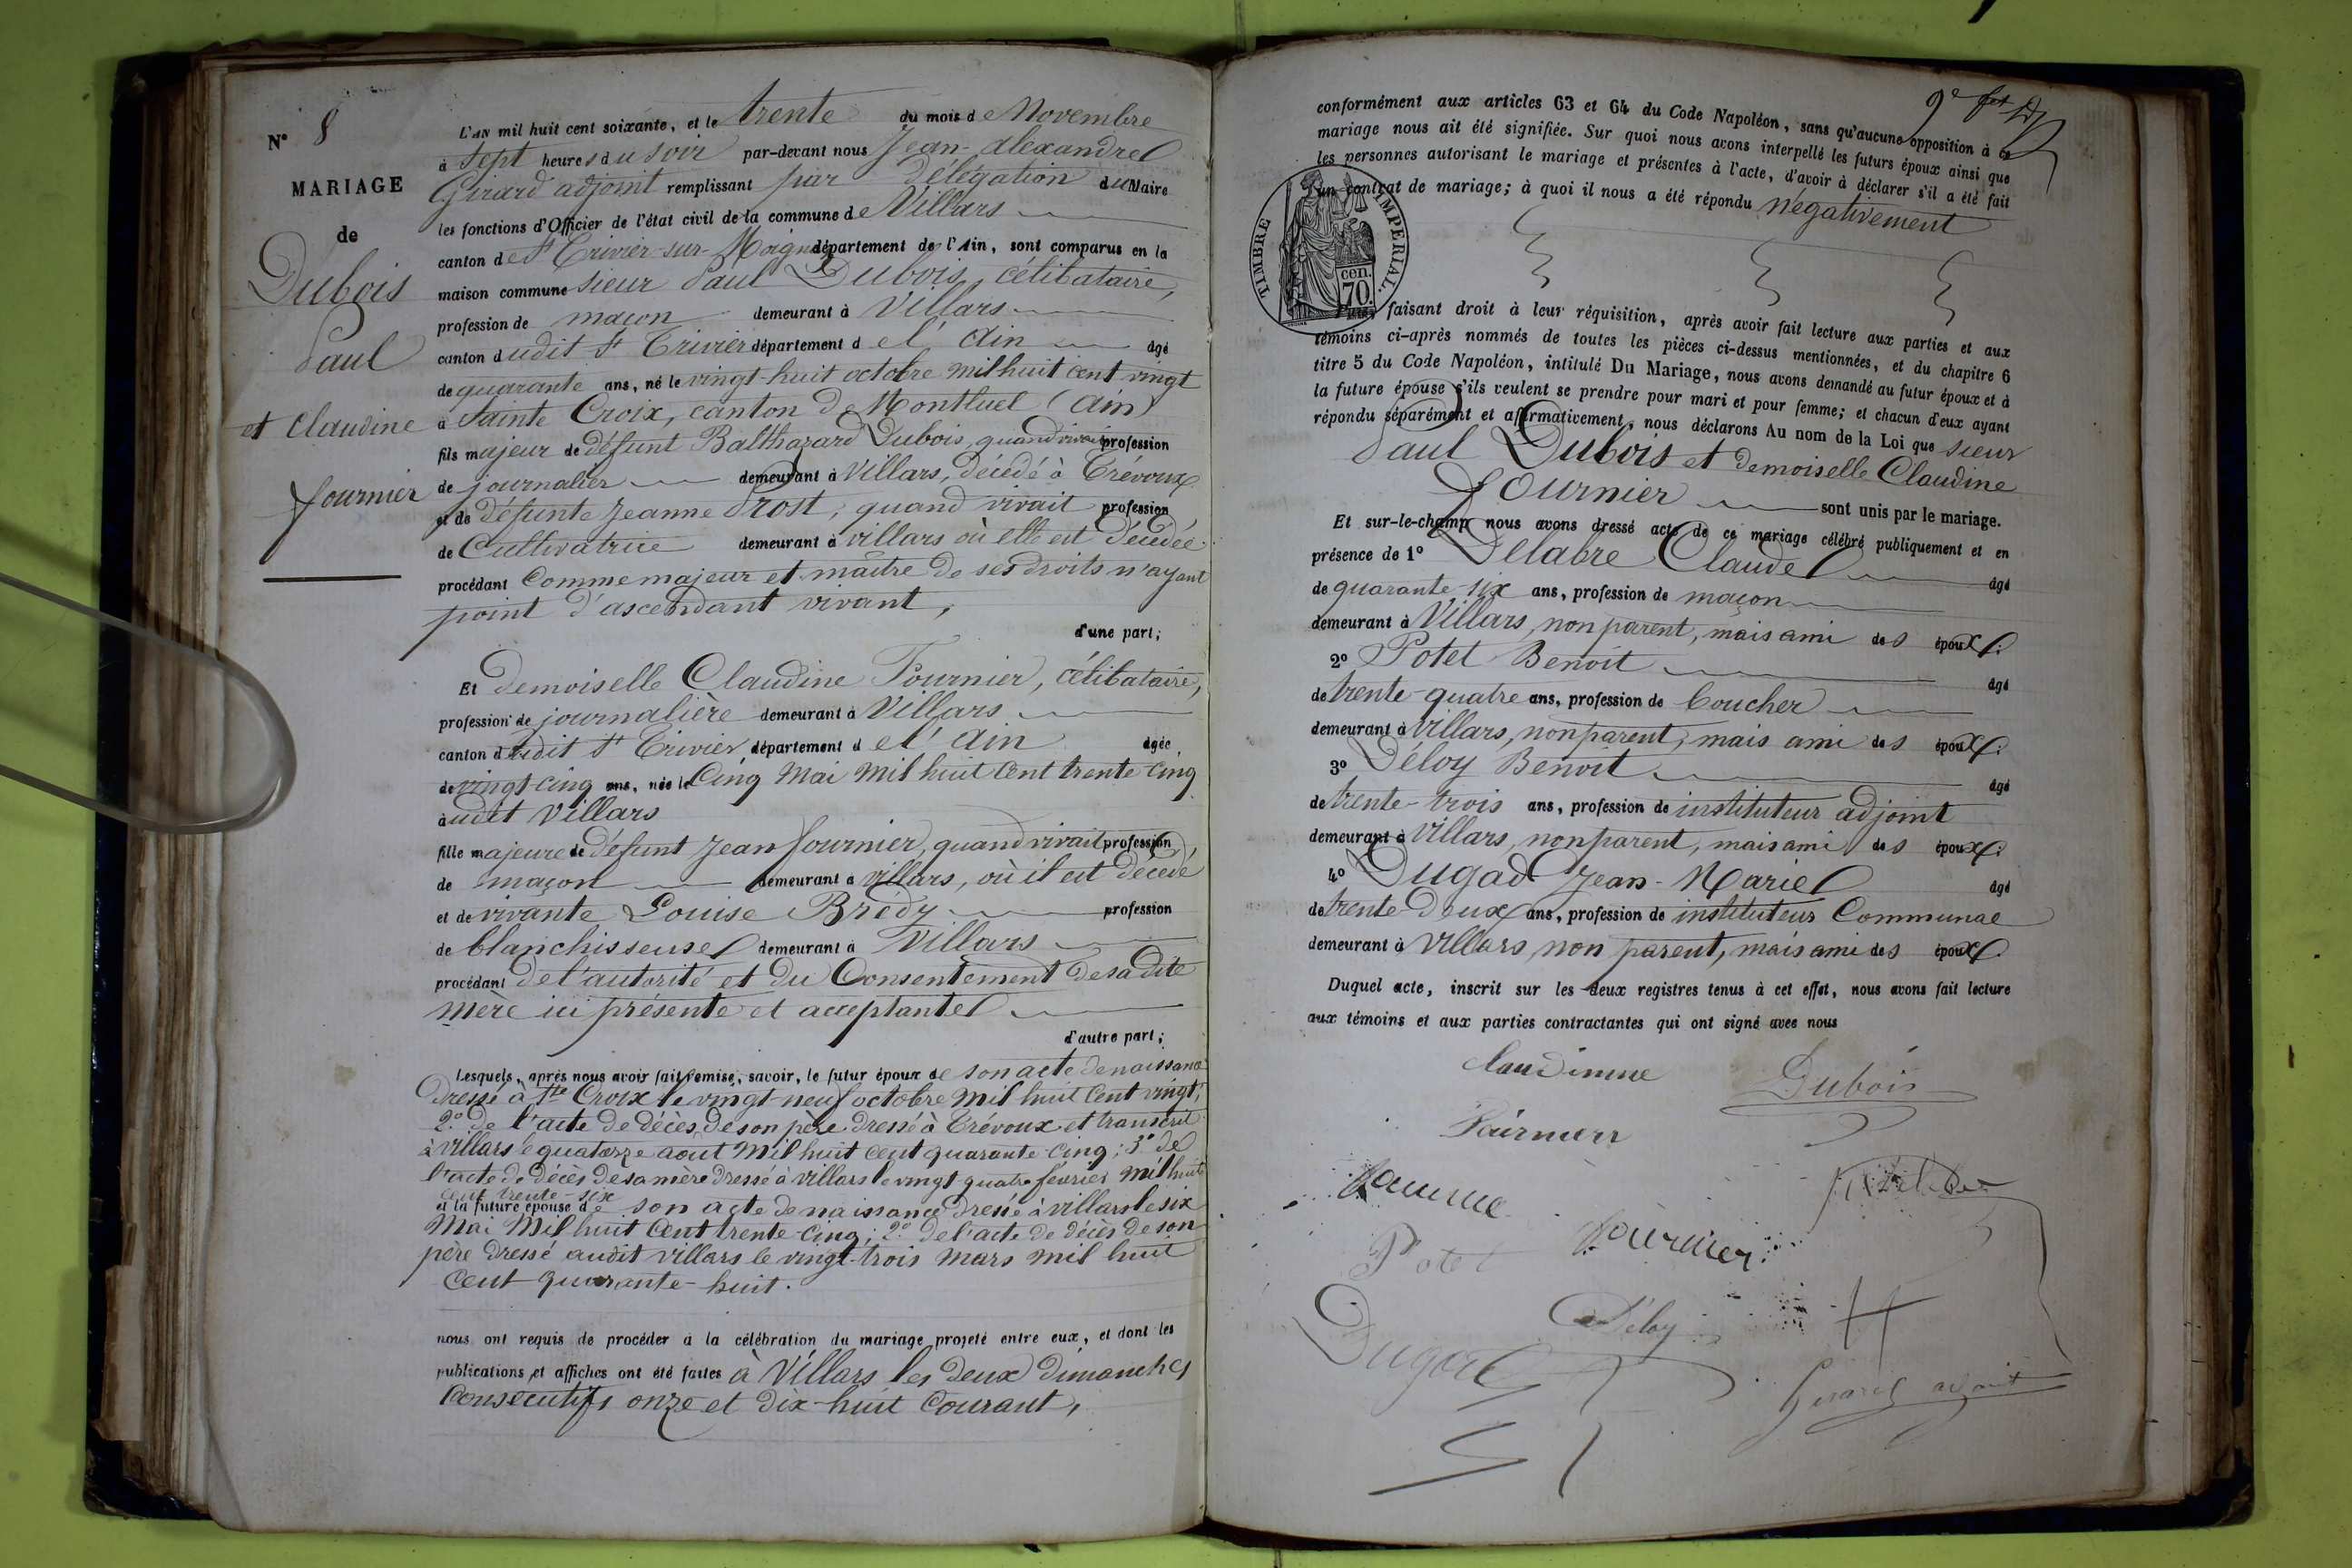 N° 8
MARIAGE
de
Dubois
Paul
et Claudine
fournier
L'AN mil huit cent soixante, et le trente du mois de Novembre
à sept heures du soir par-devant nous Jean-Alexandre
Girard adjoint remplissant par délégation du Maire
les fonctions d'Officier de l'état civil de la commune de Villars
canton de St Trivier-sur-Moignans département de l'Ain, sont comparus en la
maison commune sieur Paul Dubois, célibataire,
profession de maçon demeurant à Villars
canton dudit St Trivier département de l'Ain âgé
de quarante ans, né le vingt-huit octobre mil huit cent vingt
à Sainte Croix, canton de Montluel (Ain)
fils majeur de défunt Balthazard Dubois, quand vivait profession
de journalier demeurant à Villars, décédé à Trévoux
et de défunte Jeanne Prost, quand vivait profession
de Cultivatrice demeurant à villars où elle est décédée
procédant Comme majeur et maître de ses droits n'ayant
point d'ascendant vivant,
d'une part;
Et demoiselle Claudine Fournier, célibataire,
profession de journalière demeurant à Villars
canton dudit St Trivier département de l'Ain âgée
de vingt-cinq ans, née le Cinq Mai Mil huit Cent trente Cinq
audit Villars
fille majeure de défunt Jean fournier, quand vivait profession
de maçon demeurant à villars, où il est décédé
et de vivante Louise Bredy profession
de blanchisseuse demeurant à Villars
procédant de l'autorité et du Consentement de sa dite
mère ici présente et acceptante
d'autre part;
Lesquels, après nous avoir fait remise, savoir, le futur époux de son acte de naissance
dressé à Ste Croix le vingt-neuf octobre Mil huit Cent vingt,
2° de l'acte de décès de son père dressé à Trévoux et transcrit
à villars le quatorze août Mil huit cent quarante-cinq; 3° de
l'acte de décès de sa mère dressé à villars le vingt-quatre février Mil huit
cent trente-six
et la future épouse de son acte de naissance dressé à villars le six
Mai Mil huit Cent trente-Cinq; 2° de l'acte de décès de son
père dressé audit villars le vingt-trois Mars Mil huit
Cent quarante-huit.
nous ont requis de procéder à la célébration du mariage projeté entre eux, et dont les
publications et affiches ont été faites à Villars les deux dimanches
Consécutifs onze et dix-huit Courant,
conformément aux articles 63 et 64 du Code Napoléon, sans qu'aucune opposition à ce
mariage nous ait été signifiée. Sur quoi nous avons interpellé les futurs époux ainsi que
les personnes autorisant le mariage et présentes à l'acte, d'avoir à déclarer s'il a été fait
un contrat de mariage; à quoi il nous a été répondu négativement
TIMBRE IMPERIAL.
cen.
70.
Puis, faisant droit à leur réquisition, après avoir fait lecture aux parties et aux
témoins ci-après nommés de toutes les pièces ci-dessus mentionnées, et du chapitre 6
titre 5 du Code Napoléon, intitulé Du Mariage, nous avons demandé au futur époux et à
la future épouse s'ils veulent se prendre pour mari et pour femme; et chacun d'eux ayant
répondu séparément et affirmativement, nous déclarons Au nom de la Loi que sieur
Paul Dubois et demoiselle Claudine
Fournier sont unis par le mariage.
Et sur-le-champ nous avons dressé acte de ce mariage célébré publiquement et en
présence de 1° Delabre Claude âgé
de quarante-six ans, profession de maçon
demeurant à Villars, non parent, mais ami des époux.
2° Potet Benoit âgé
de trente-quatre ans, profession de boucher
demeurant à villars, non parent, mais ami des époux.
3° Déloy Benoit âgé
de trente-trois ans, profession de instituteur adjoint
demeurant à villars, non parent, mais ami des époux.
4° Dugad Jean-Marie âgé
de trente-deux ans, profession de instituteur Communal
demeurant à villars, non parent, mais ami des époux
Duquel acte, inscrit sur les deux registres tenus à cet effet, nous avons fait lecture
aux témoins et aux parties contractantes qui ont signé avec nous
Dubois
Potet
Déloy
Dugad
Girard adjoint